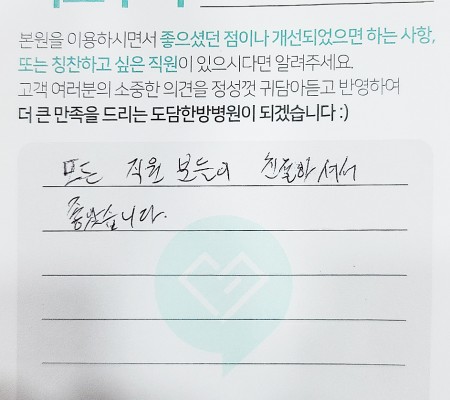 본원을 이용하시면서 좋으셨던 점이나 개선되었으면 하는 사항,
또는 칭찬하고 싶은 직원이 있으시다면 알려주세요.
고객 여러분의 소중한 의견을 정성껏 귀담아듣고 반영하여
더 큰 만족을 드리는 도담한방병원이 되겠습니다 :)
모든 직원 분들이 친절하셔서
좋았습니다.